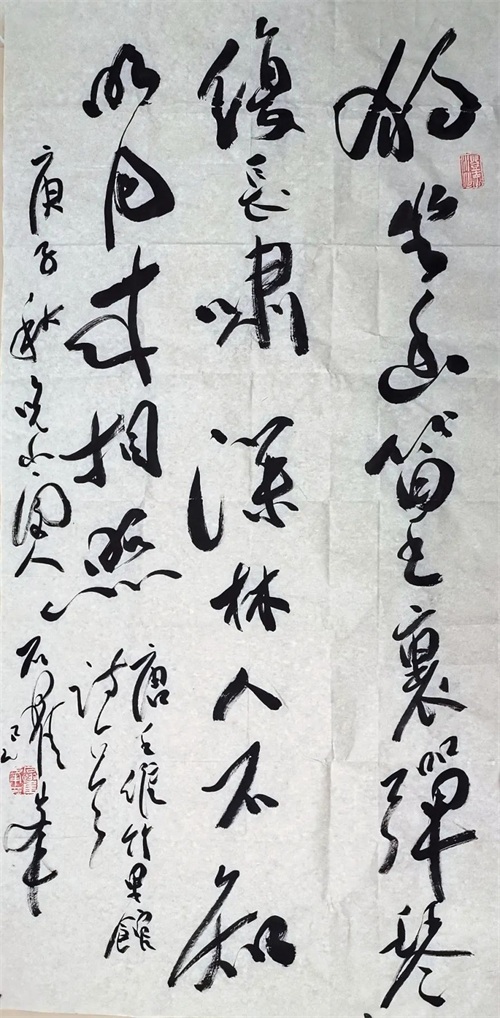 獨坐幽篁裏彈琴
復長嘯深林人不知
明月來相照
唐王維竹里館
詩一首
庚子秋